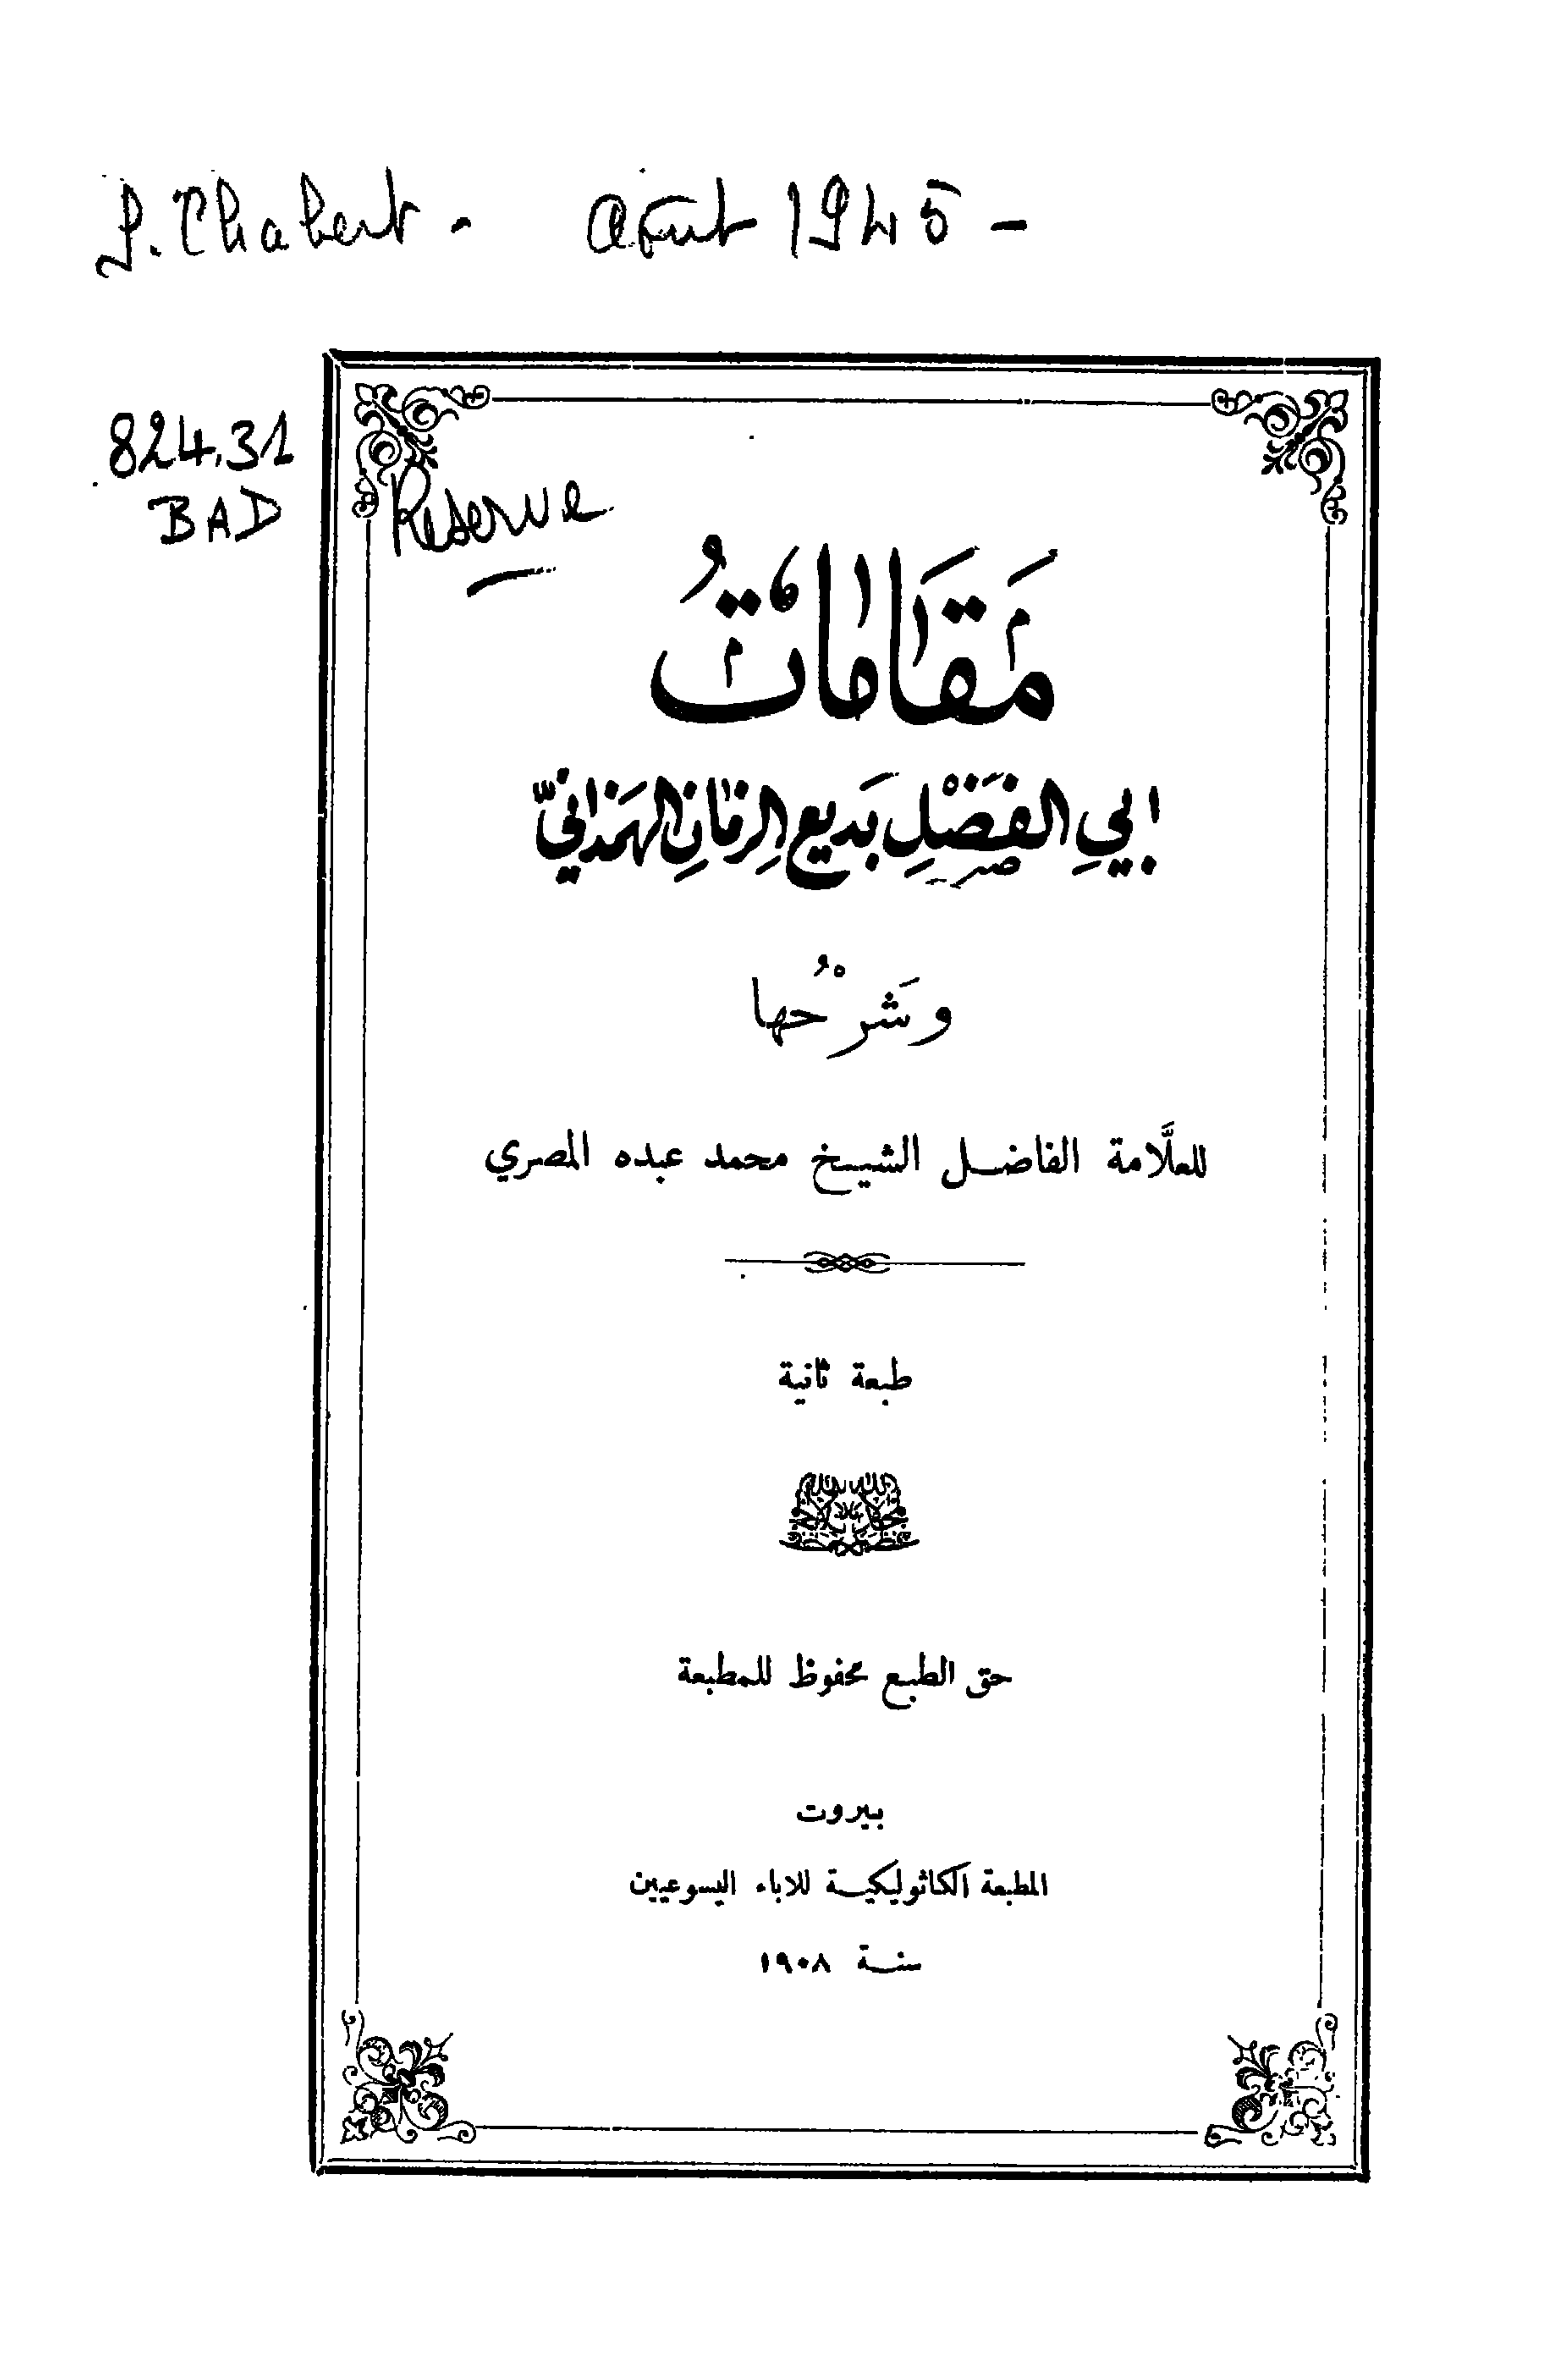 J. Chabert - août 1945 -
824.31
BAD
Reserve
مَقَامَاتُ
ابي الفَضْلِ بَديعِ الزمَانِ الهمَذانيّ
وشَرْحُها
للعلَّامة الفاضل الشيخ محمد عبده المصري
طبعة ثانية
حق الطبع محفوظ للمطبعة
بيروت
المطبعة الكاثوليكية للاباء اليسوعيين
سنة ١٩٠٨